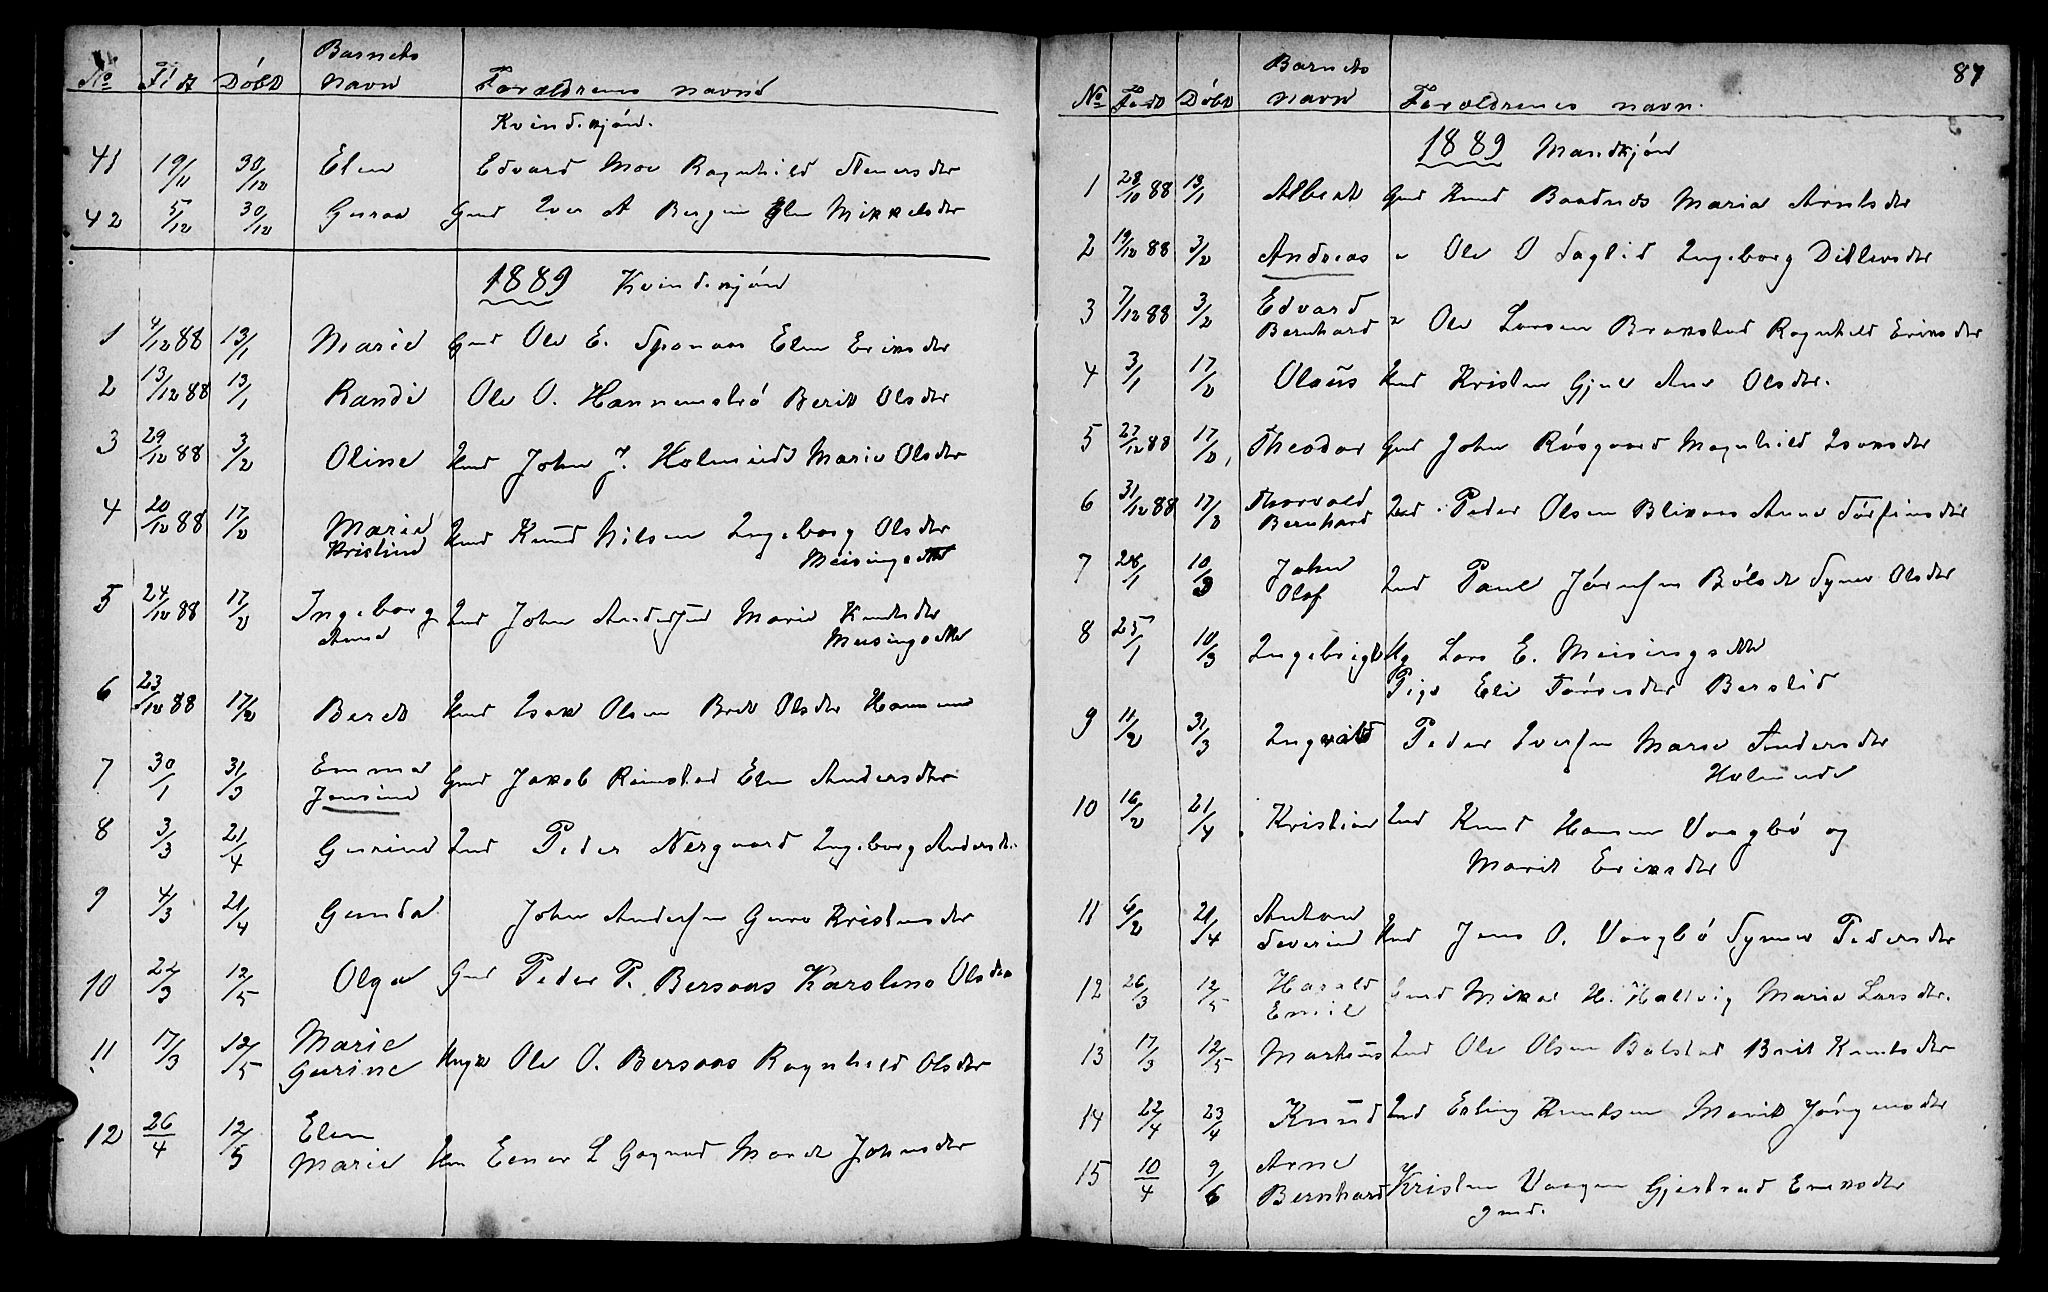 Barnets
No Född Döbt navn Forældrenes navne
Kvindekjön.
41 19/11 30/12 Elen Edvard Moe Ragnhild Steners dtr
42 5/12 30/12 Guroa Gmd Iver A Bergem Elen Mikkels dtr
1889 Kvindekjön
1 4/12 88 13/1 Marie Gmd Ole E. Sponaas Elen Eriks dtr
2 13/12 88 13/1 Randi Ole O. Hannemströ Berit Ols dtr
3 29/12 88 3/2 Oline Hmd John J. Holmeide Marie Ols dtr
4 20/12 88 17/2 Marie Hmd Knud Nilsen Ingeborg Ols dtr
Kristine Meisingset
5 24/12 88 17/2 Ingeborg Ind John Andersen Marie Knuds dtr
Anne Meisingset
6 23/12 88 17/2 Beret Hmd Isak Olsen Beret Ols dtr
7 30/1 31/3 Emma Gmd Jakob Rimstad Elen Anders dtr
Jensine
8 3/3 21/4 Gurine Ind Peder Nergaard Ingeborg Anders d.
9 4/3 21/4 Gunda John Andersen Guro Kristens dtr
10 22/3 12/5 Olga Gmd Peder P. Bersaas Karolene Ols dtr
11 17/3 12/5 Marie Ole O. Bersaas Ragnhild Ols dtr
Gurine
12 26/4 12/5 Elen
Marie Einar L Gagnad Marit Johns dtr
87
Barnets
No Född Döbt navn Forældrenes navn.
1889 Mandkjön
1 28/10 88 13/1 Albert Gmd Knud Baadnes Marie Arnts dtr
2 19/12 88 3/2 Andreas " Ole O Faglid Ingeborg Ditlevs dtr
3 7/12 88 3/2 Edvard
Bernhard " Ole Larsen Brakstad Ragnhild Eriks dtr
4 3/1 17/2 Olaüs Hmd Kristen Gjul Ane Ols dtr.
5 27/12 88 17/2 Theodor Gmd John Rösgaard Magnhild Isaks dtr
6 31/12 88 17/2 Thorvald
Bernhard Ind Peder Olsen Blikaas Anne Törfins dtr
7 28/1 10/3 John
Olof Ind Paul Bölset Syner Ols dtr
8 25/1 10/3 Ingebrigt Lars E. Meisingset
Pige Eli Tores dtr Berslid
9 11/2 31/3 Ingvald Peder Iversen Marie Anders dtr
Holmeide
10 16/2 21/4 Kristian Ind Knud Hansen Vaagbö og
Marit Eriks dtr
11 6/2 21/4 Anton
Severin Hmd Jens O. Vaagbö Syner Peders dtr
12 26/3 12/5 Harald
Emil Gmd Mikal H. Hallvig Marie Lars dtr.
13 17/3 12/5 Markus Ind Ole Olsen Bolstad Berit Knuts dtr
14 22/4 23/4 Knüd Ind Erling Knutsen Marit Jörgens dtr
15 10/4 9/6 Arne
Bernhard Kristen Vaagen Gjertrud Eriks dtr
gmd.